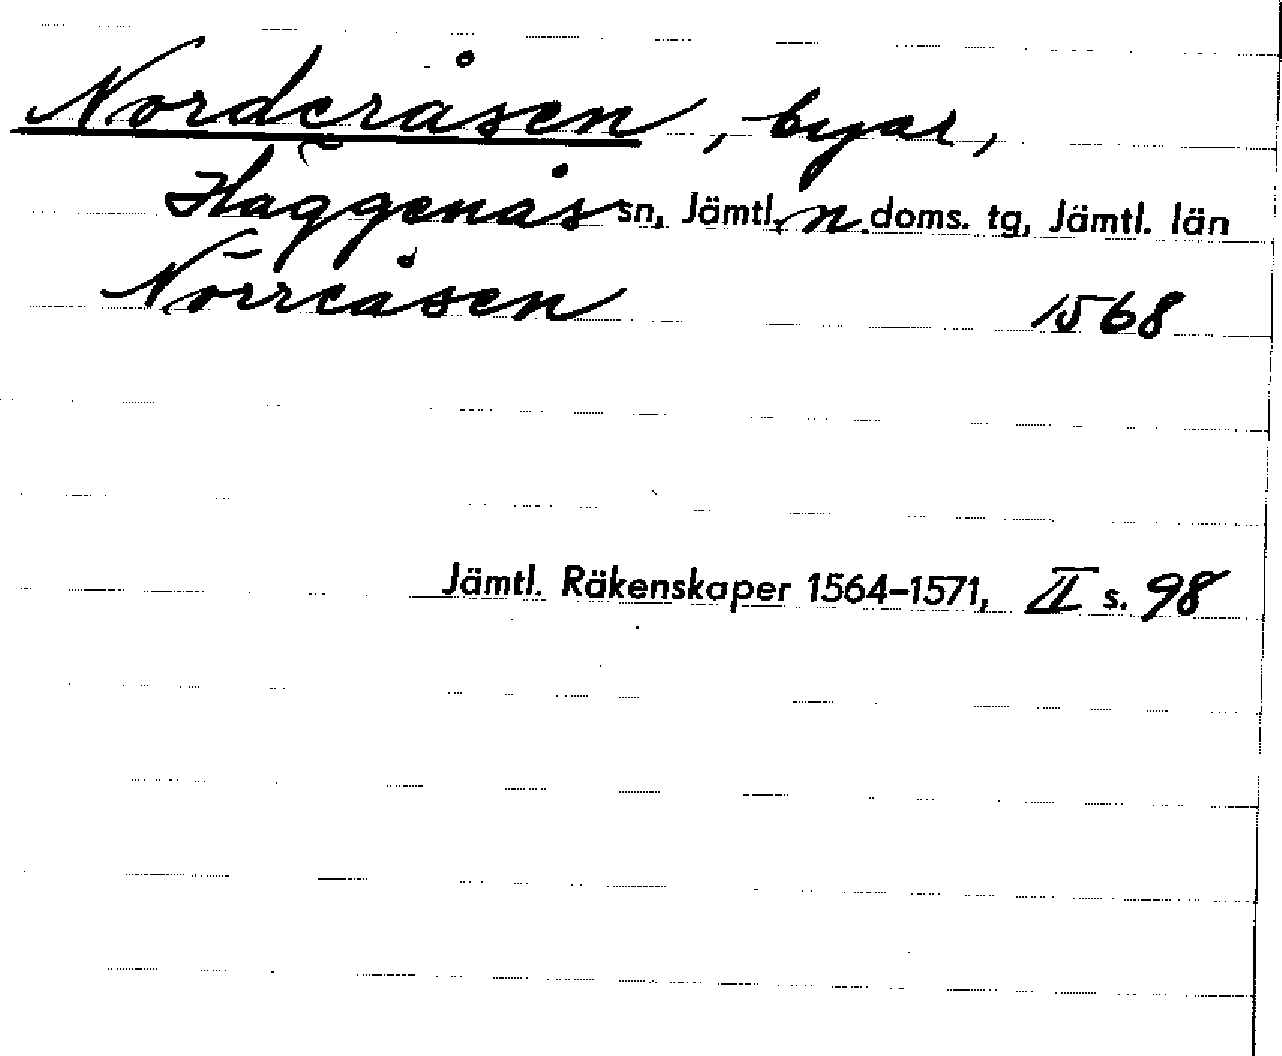 Norderåsen, byar,
Häggenås sn, Jämtl. n. doms. tg, Jämtl. län
Nörreåsen 1568
Jämtl. Räkenskaper 1564-1571, II s. 98